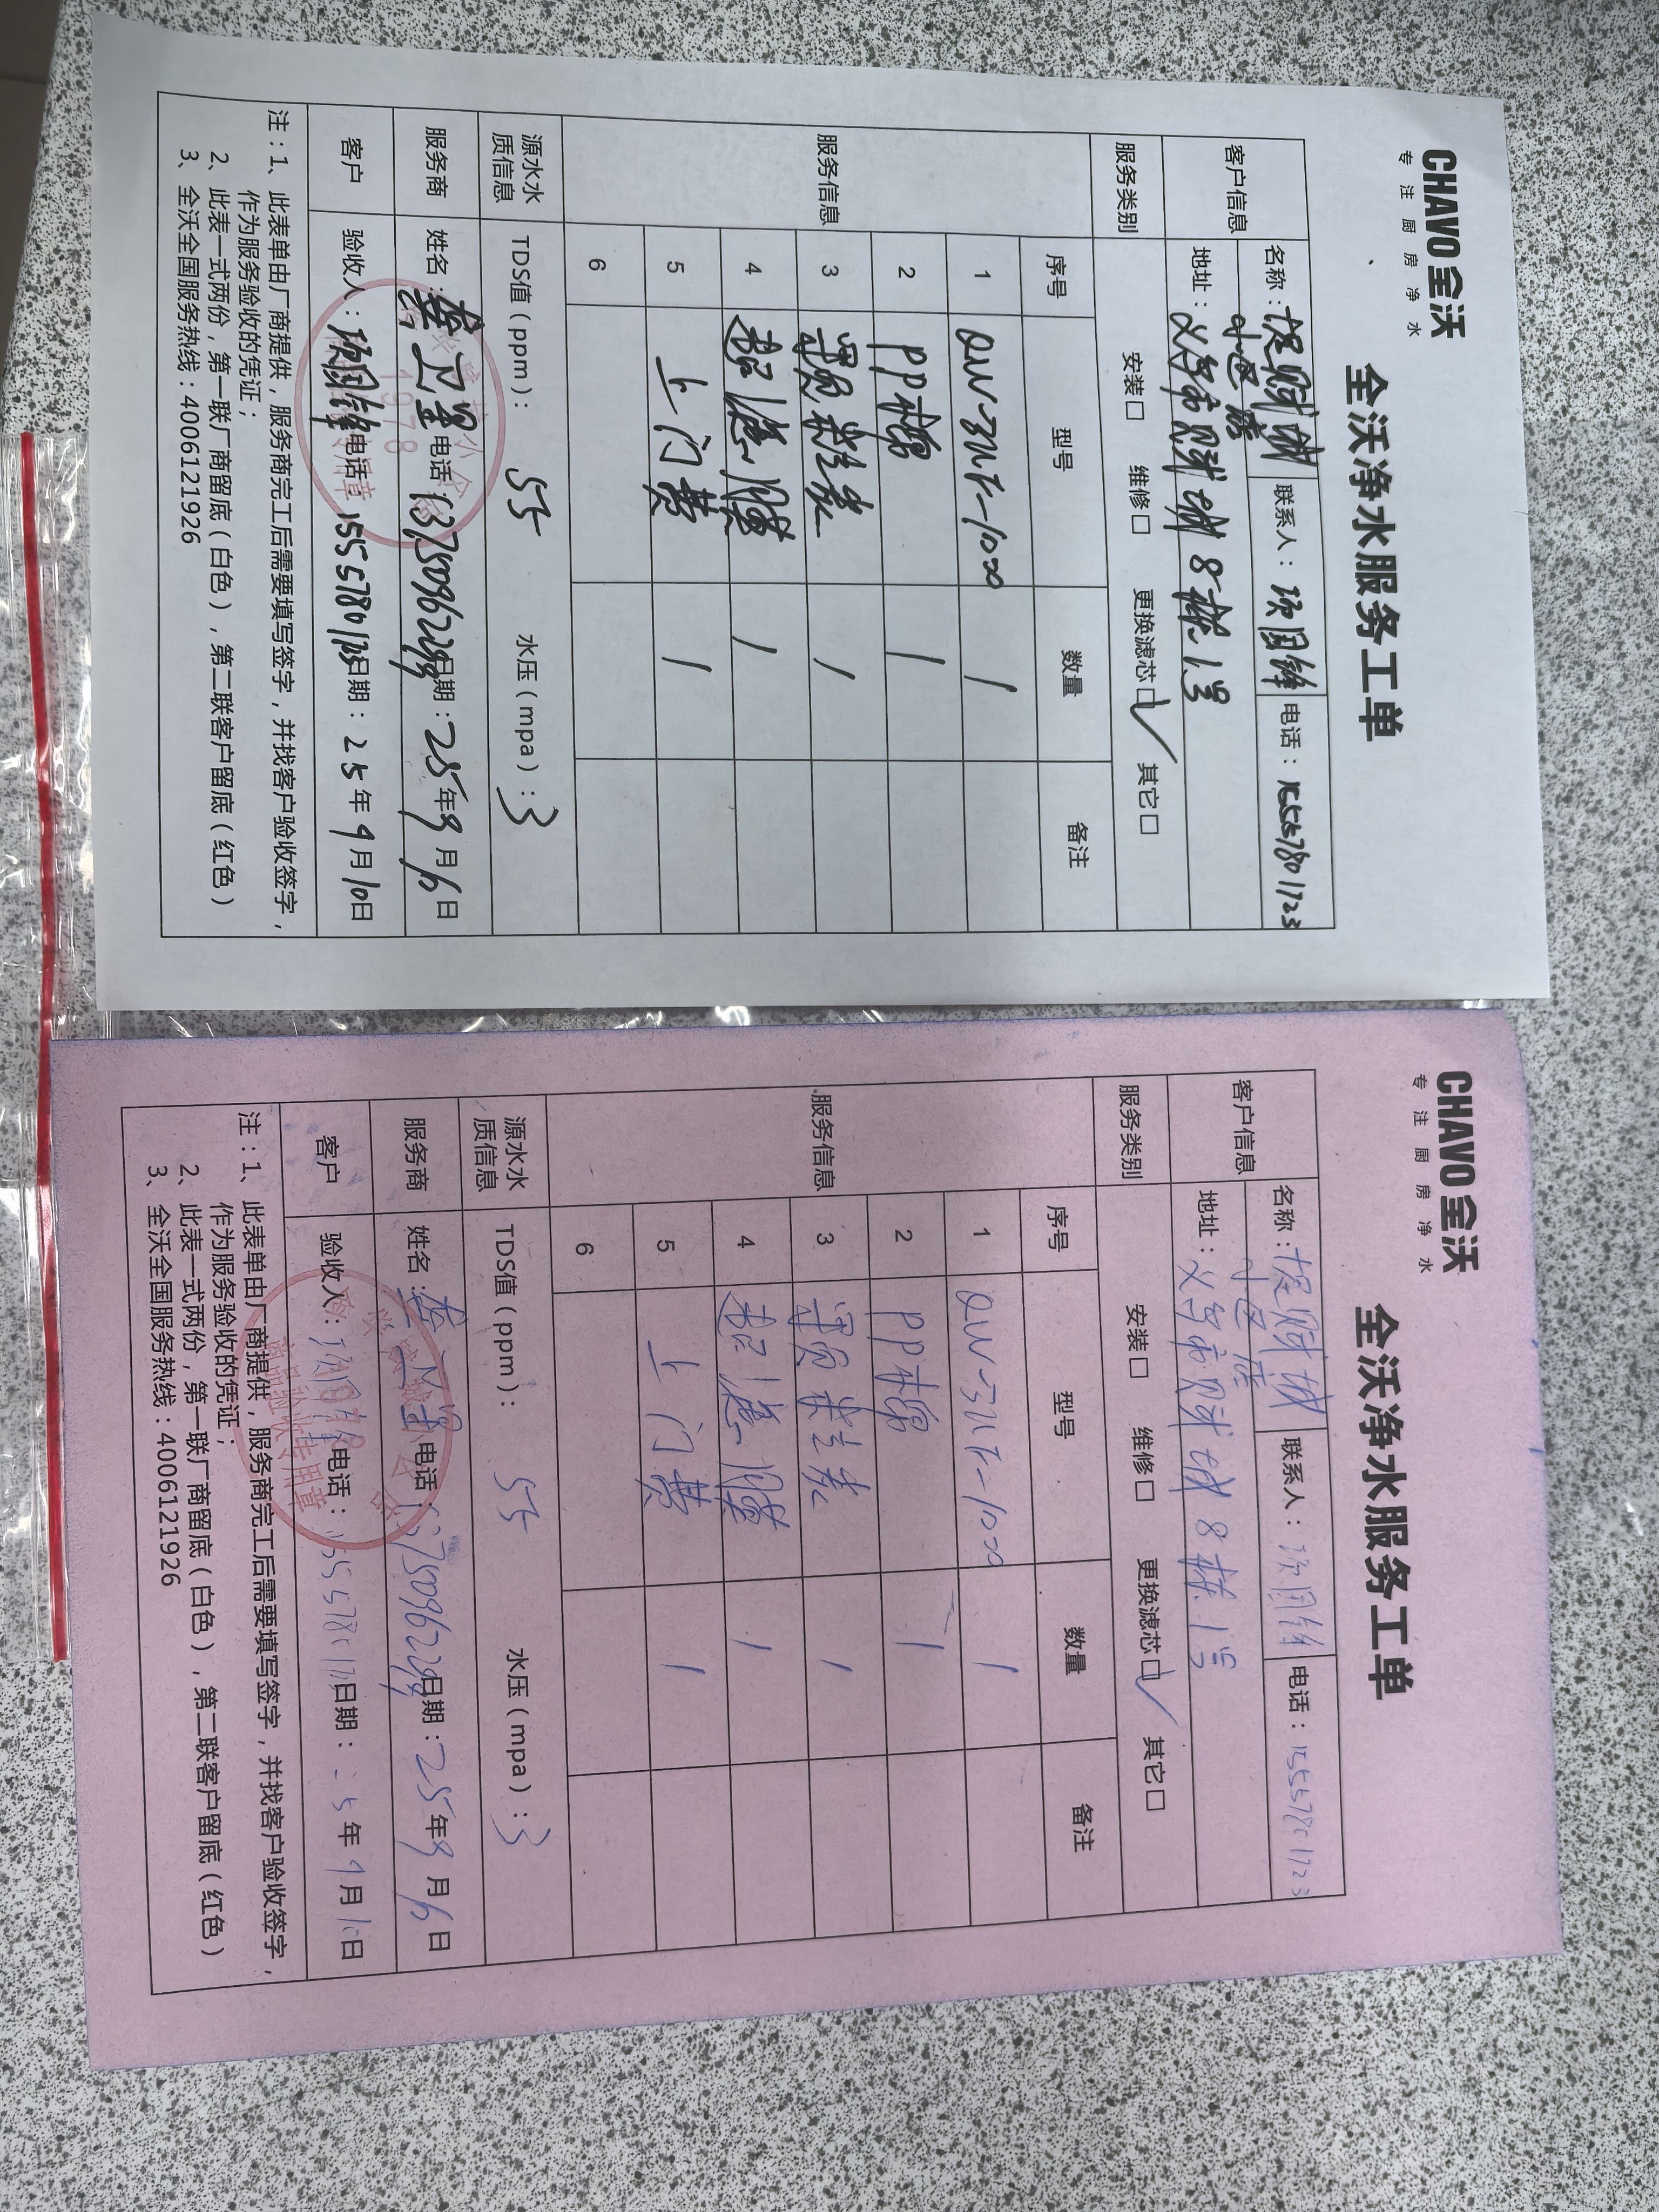 CHAVO 全沃
专注厨房净水
全沃净水服务工单
客户信息
名称：
联系人：项国锋
电话：15557801723
地址：义乌市 城8栋1号
服务类别
安装□ 维修□ 更换滤芯□√ 其它□
服务信息
序号 型号 数量 备注
1 1
2 PP棉 1
3 颗粒炭 1
4 超滤膜 1
5 上门费 1
6
源水水质信息
TDS值（ppm）： 55 水压（mpa）：3
服务商
姓名： 电话： 日期：25年9月6日
客户
验收人：项国锋 电话：15557801723 日期：25年9月10日
注：1、此表单由厂商提供，服务商完工后需要填写签字，并找客户验收签字，
作为服务验收的凭证；
2、此表一式两份，第一联厂商留底（白色），第二联客户留底（红色）
3、全沃全国服务热线：4006121926
CHAVO 全沃
专注厨房净水
全沃净水服务工单
客户信息
名称：
联系人：项国锋
电话：15557801723
地址：义乌市 城8栋1号
服务类别
安装□ 维修□ 更换滤芯□√ 其它□
服务信息
序号 型号 数量 备注
1 1
2 PP棉 1
3 颗粒炭 1
4 超滤膜 1
5 上门费 1
6
源水水质信息
TDS值（ppm）： 55 水压（mpa）：3
服务商
姓名： 电话： 日期：25年9月6日
客户
验收人：项国锋 电话： 日期： 5年9月10日
注：1、此表单由厂商提供，服务商完工后需要填写签字，并找客户验收签字，
作为服务验收的凭证；
2、此表一式两份，第一联厂商留底（白色），第二联客户留底（红色）
3、全沃全国服务热线：4006121926